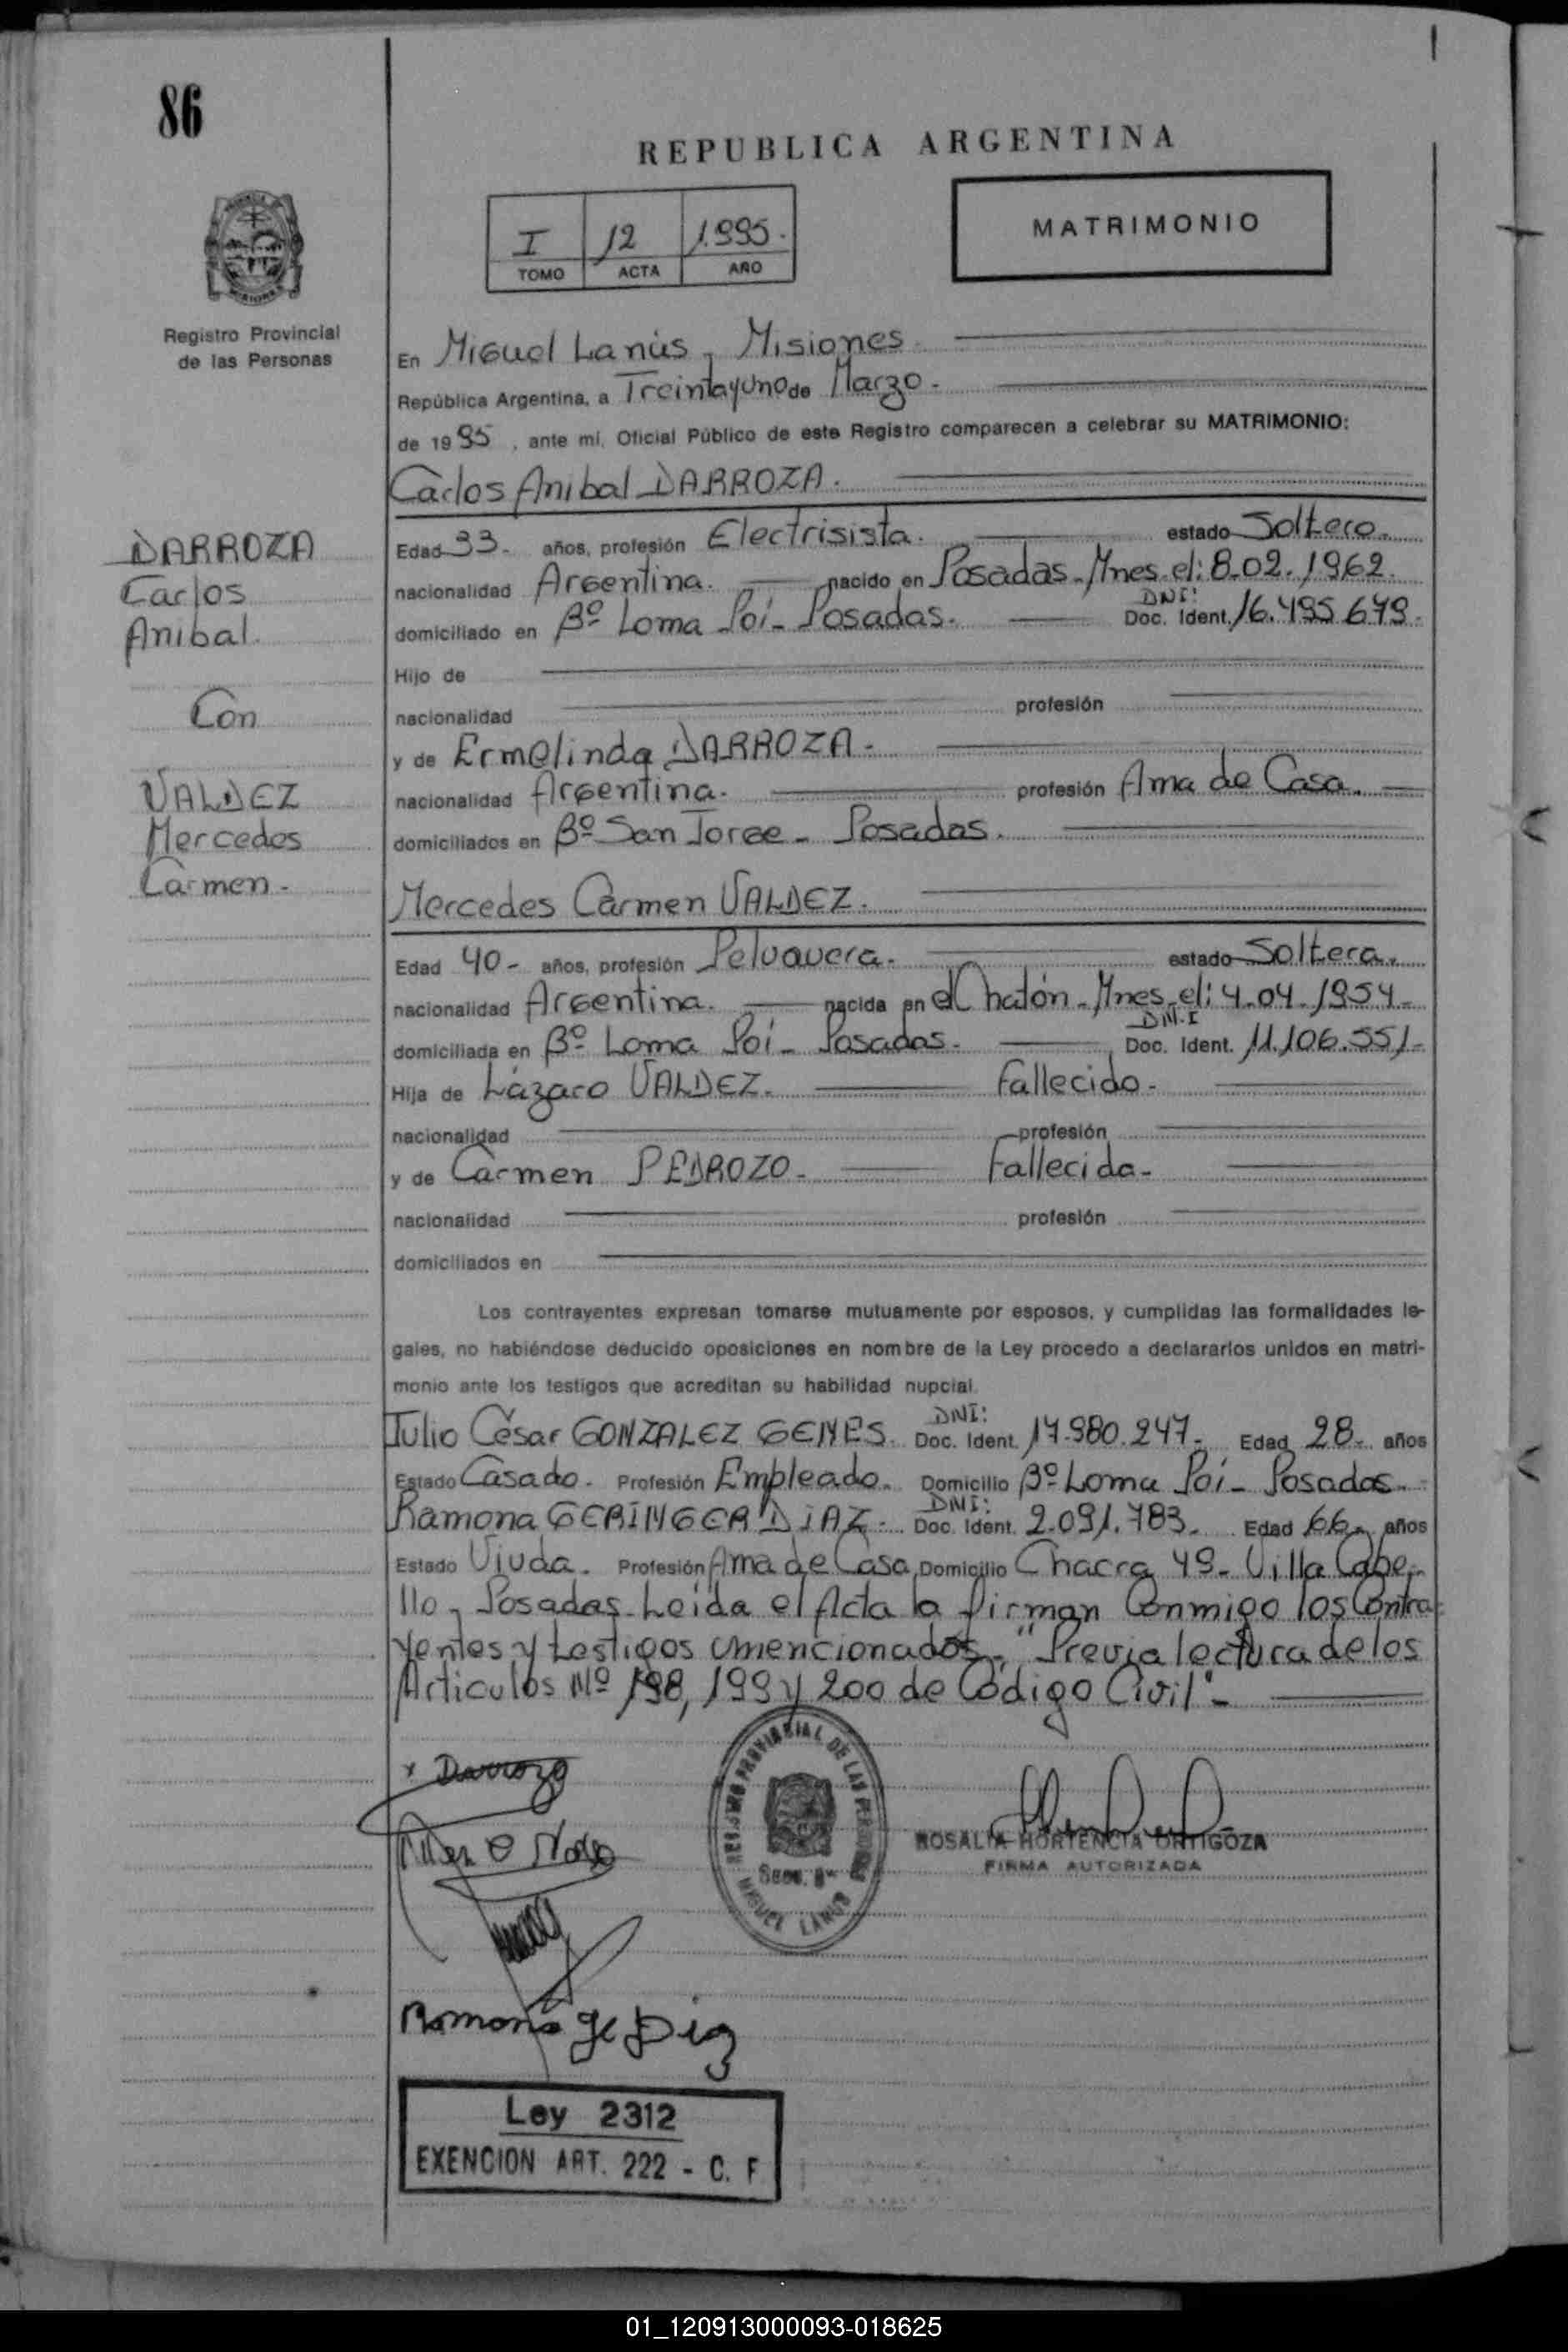 86
REPUBLICA ARGENTINA
I 12 1.995.
TOMO ACTA AÑO
MATRIMONIO
Registro Provincial
de las Personas
En Miguel Lanús - Misiones
República Argentina, a Treintayuno de Marzo.
de 1995, ante mí, Oficial Público de este Registro comparecen a celebrar su MATRIMONIO:
Carlos Anibal DARROZA.
DARROZA
Carlos
Anibal.
Con
VALDEZ
Mercedes
Carmen.
Edad 33. años, profesión Electrisista. estado Soltero.
nacionalidad Argentina. nacido en Posadas-Mnes. el: 8-02.1962.
domiciliado en Bº Loma Poí- Posadas. DNI: Doc. Ident. 16.495.679.
Hijo de
nacionalidad profesión
y de Ermelinda DARROZA.
nacionalidad Argentina. profesión Ama de Casa.
domiciliados en Bº San Jorge - Posadas.
Mercedes Carmen VALDEZ.
Edad 40- años, profesión estado Soltera.
nacionalidad Argentina. nacida en el Mnes. el: 4.04.1954.
domiciliada en Bº Loma Poí- Posadas. DNI Doc. Ident. 11.106.551-
Hija de Lázaro VALDEZ. Fallecido.
nacionalidad profesión
y de Carmen PEDROZO. Fallecida-
nacionalidad profesión
domiciliados en
Los contrayentes expresan tomarse mutuamente por esposos, y cumplidas las formalidades le-
gales, no habiéndose deducido oposiciones en nombre de la Ley procedo a declararlos unidos en matri-
monio ante los testigos que acreditan su habilidad nupcial.
Julio César GONZALEZ GENES. DNI: Doc. Ident. 17.980.247. Edad 28. años
Estado Casado. Profesión Empleado. Domicilio Bº Loma Poí- Posadas.
Ramona GERINGER DIAZ. DNI: Doc. Ident. 2.091.783. Edad 66. años
Estado Viuda. Profesión Ama de Casa Domicilio Chacra 49- Villa Cabe-
llo- Posadas. Leída el Acta la firman Conmigo los Contra-
yentes y testigos mencionados. "Previa lectura de los
Articulos Nº 198, 199 y 200 de Código Civil".-
Darroza
REGISTRO PROVINCIAL DE LAS PERSONAS
MIGUEL LANUS
ROSALIA HORTENCIA ORTIGOZA
FIRMA AUTORIZADA
Ramona
Ley 2312
EXENCION ART. 222 - C. F
01_120913000093-018625